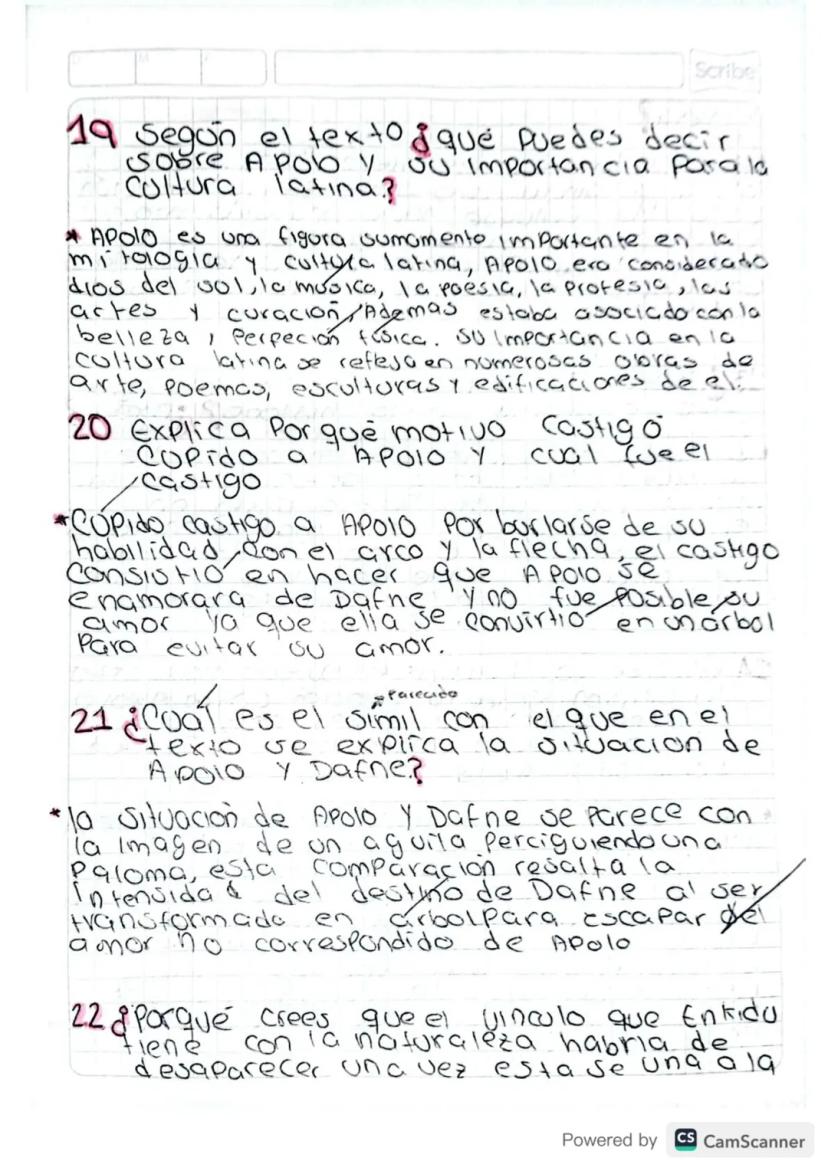 Scribe
19 Según el texto ¿qué puedes decir
sobre Apolo y su importancia para la
cultura latina?
* Apolo es una figura sumamente importante en la
mitología y cultura latina, Apolo era considerado
dios del sol, la música, la poesía, la profesia, las
artes y curación, Ademas estaba asociado con la
belleza, perpeción física. Su importancia en la
cultura latina se refleja en numerosas obras de
arte, poemas, esculturas y edificaciones de el.
20 Explica Por qué motivo castigó
Cupido a Apolo y cual fue el
castigo
* Cupido castigo a Apolo por burlarse de su
habilidad con el arco y la flecha, el castigo
consistio en hacer que Apolo se
enamorara de Dafne y no fue posible su
amor ya que ella se convirtio en un árbol
para evitar su amor.
parecido
21 ¿Cuál es el simil con el que en el
texto se explica la situacion de
Apolo y Dafne?
* la situación de Apolo y Dafne se parece con
la imagen de un aguila perciguiendo una
paloma, esta comparación resalta la
intensidad del destino de Dafne al ser
transformada en árbol para escapar del
amor no correspondido de Apolo
22 ¿Porqué crees que el vinculo que Enkidu
tiene con la naturaleza habria de
desaparecer una vez esta se una a la
Powered by CS CamScanner